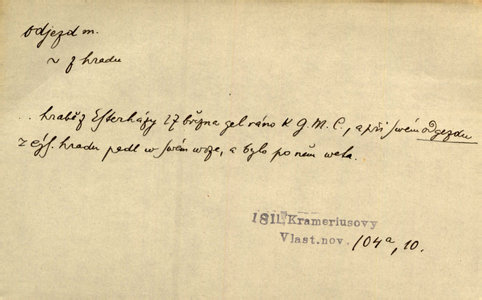 Odjezd m.
~ z hradu
.. hrabě z Esterházy 27 března gel ráno K G. M. C., a při swém odgezdu
z cýs. hradu pedl w swém woze, a bylo po něm weta..
1811, Krameriusovy
Vlast. nov. 104a, 10.